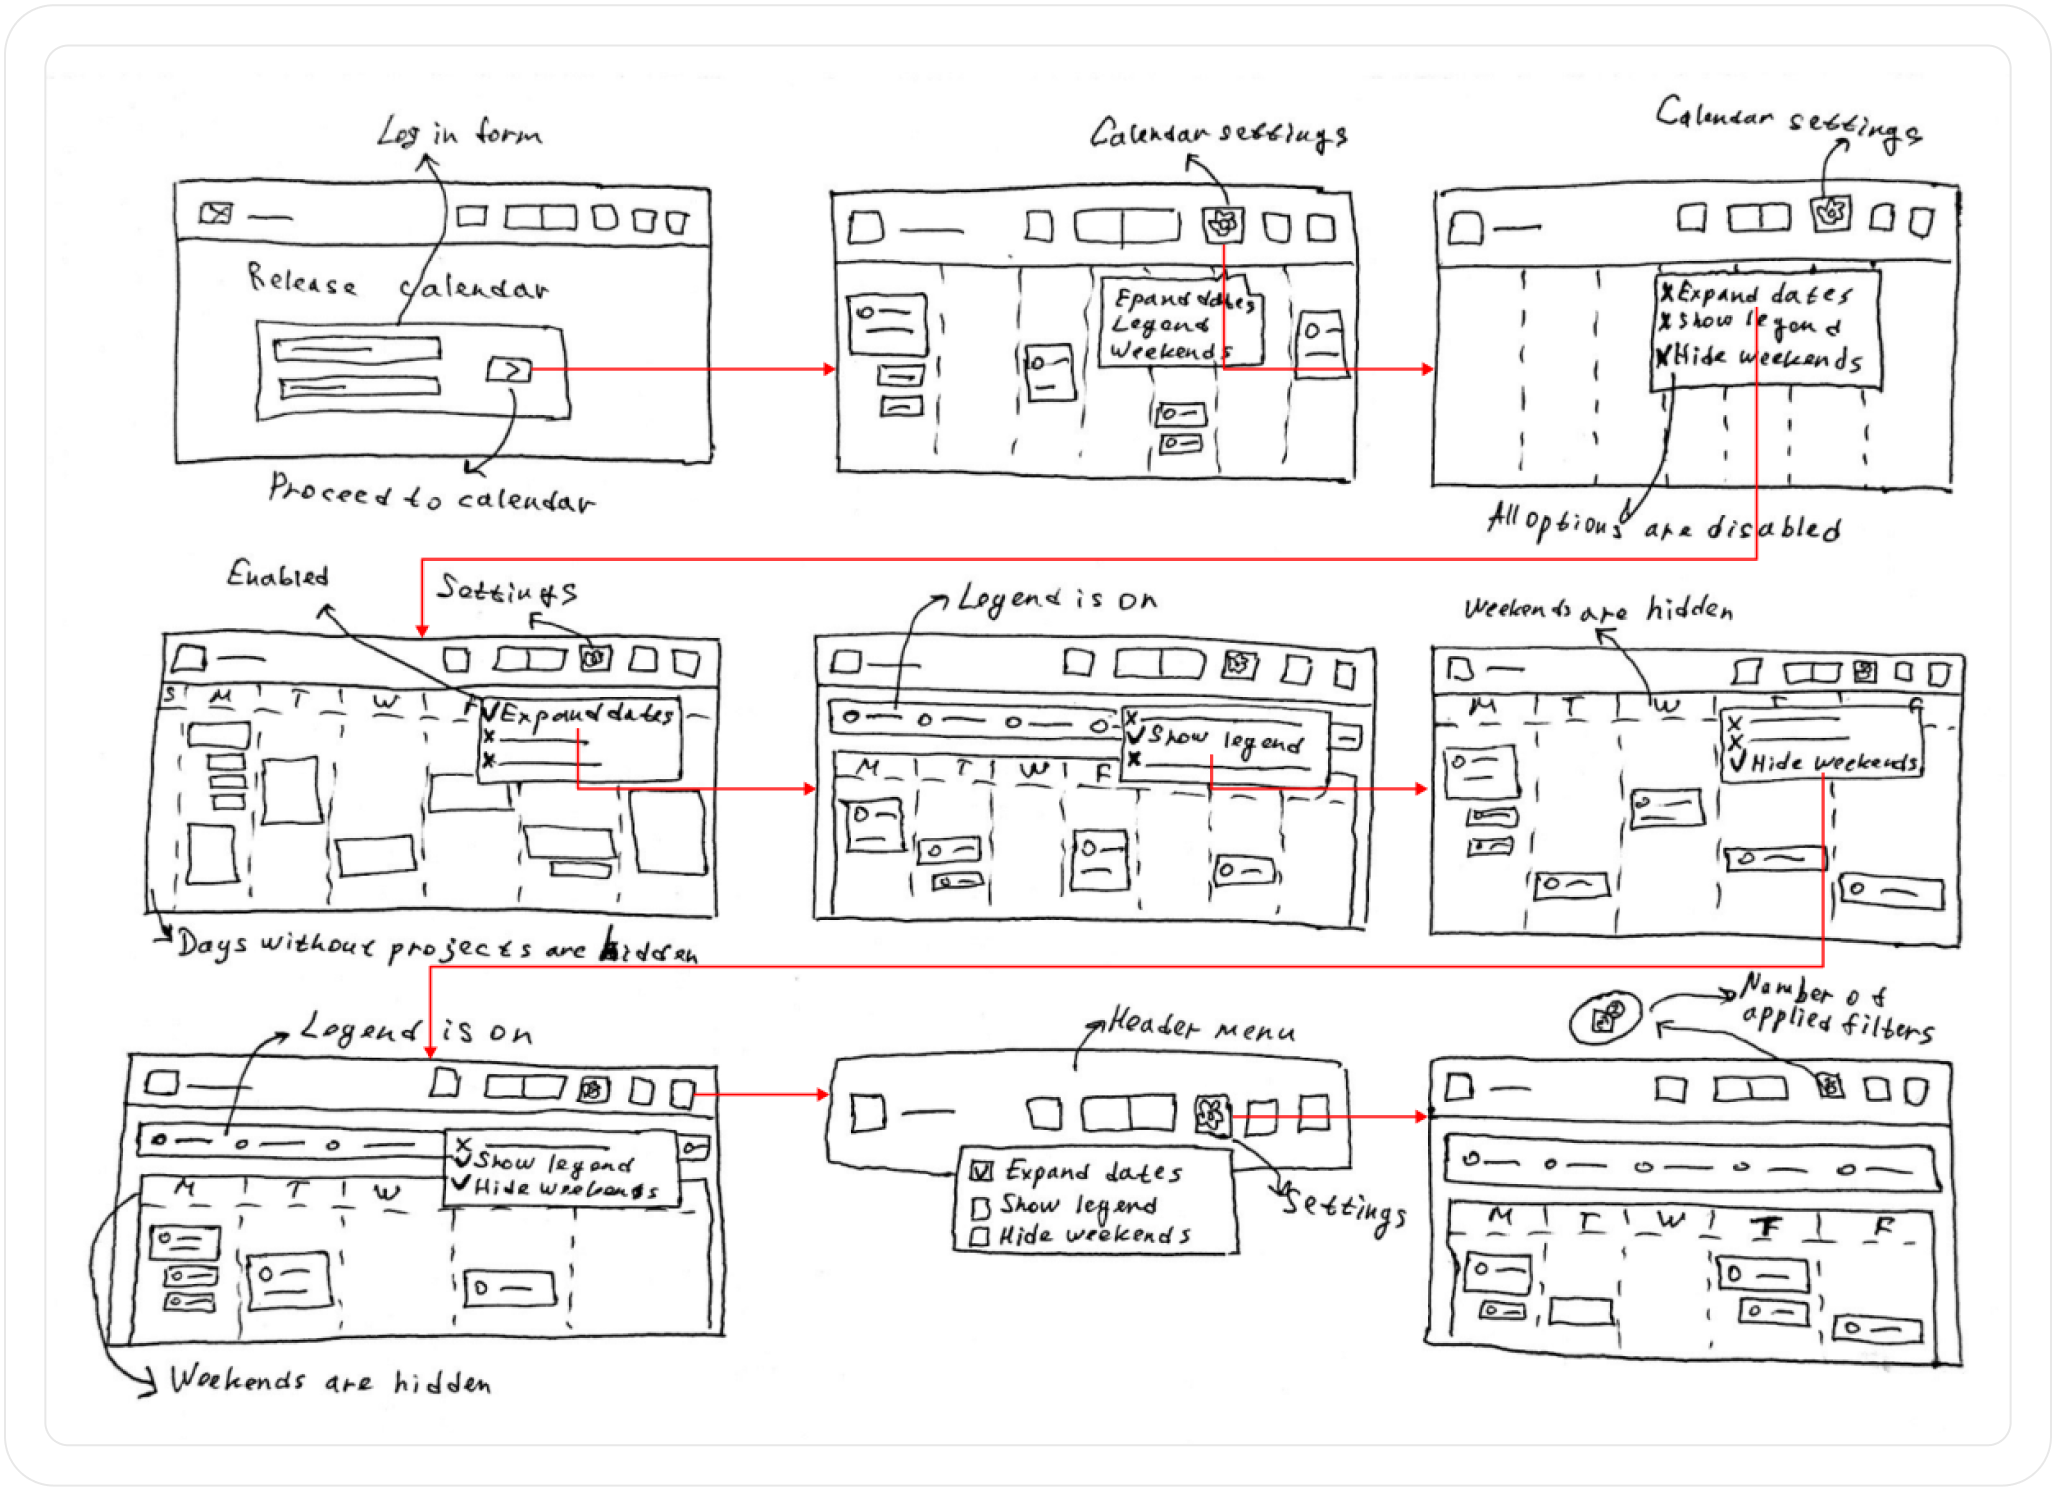 Log in form
Release calendar
Proceed to calendar
Calendar settings
Epand dates
Legend
Weekends
Calendar settings
x Expand dates
x Show legend
x Hide weekends
All options are disabled
Enabled
Settings
S M T W F
✓ Expand dates
x
x
Days without projects are hidden
Legend is on
x
✓ Show legend
x
M T W F
Weekends are hidden
M T W F F
x
x
✓ Hide weekends
Legend is on
x
✓ Show legend
✓ Hide weekends
M T W
Weekends are hidden
Header menu
Expand dates
Show legend
Hide weekends
Settings
Number of
applied filters
M T W T F